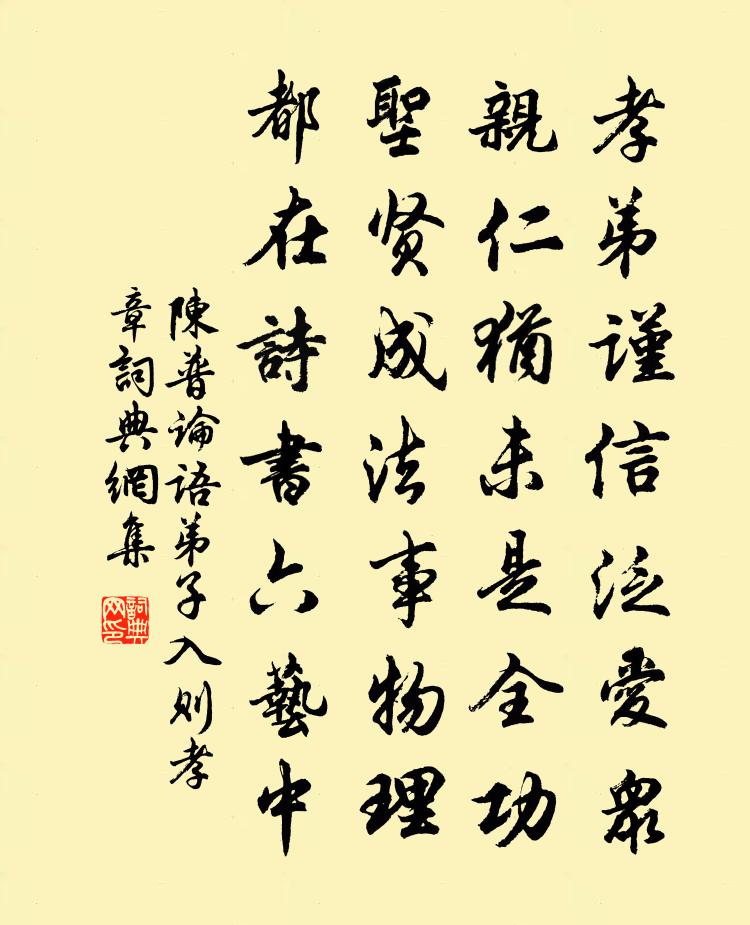 孝弟謹信泛愛衆
親仁猶未是全功
聖贤成法事物理
都在詩書六藝中
陳普論语弟子入则孝
章詞典網集
詞典网印